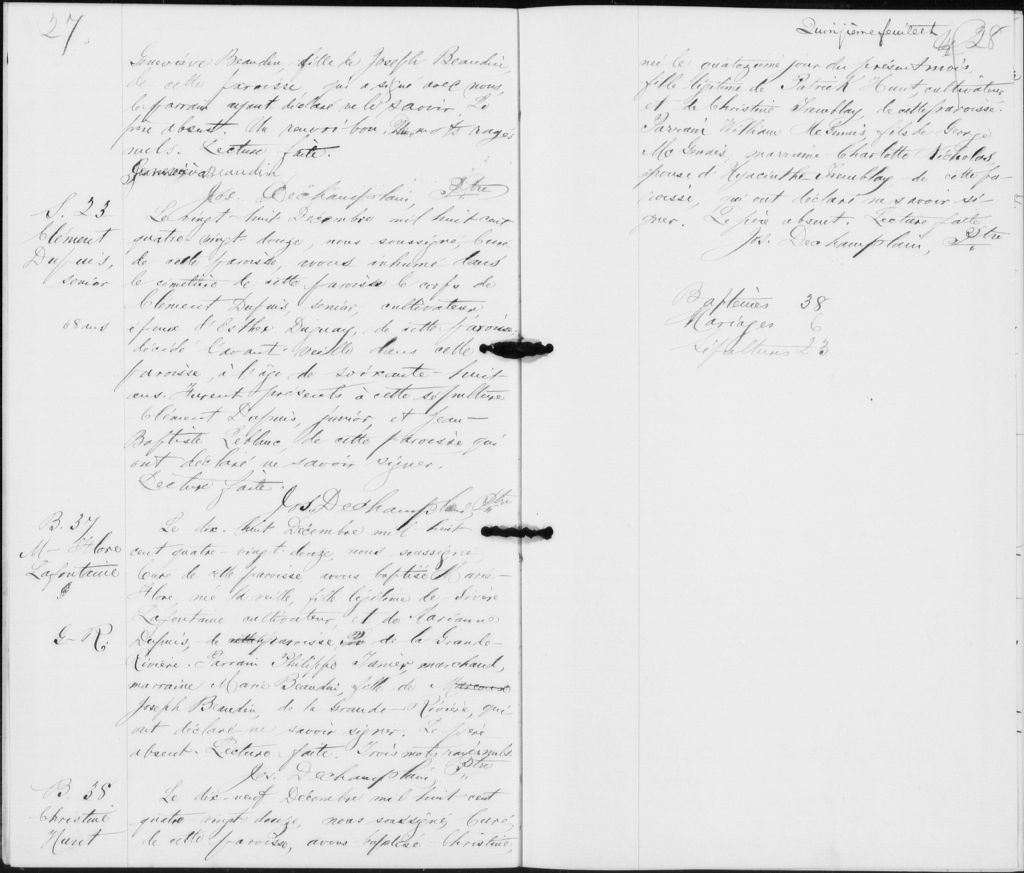 27.
Geneviève Beaudin, fille de Joseph Beaudin,
de cette paroisse, qui a signé avec nous,
le parrain ayant déclaré ne le savoir. Le
père absent. Un renvoi bon. mots rayés
nuls. Lecture faite.
Geneviève Beaudin
Jos. Dechamplain, Ptre
S. 23
Clément
Dupuis,
senior
68 ans
Le vingt-huit Decembre mil huit cent
quatre vingt douze, nous soussigné, Curé
de cette paroisse, avons inhumé dans
le cimetière de cette paroisse le corps de
Clément Dupuis, senior, cultivateur
époux d'Esther Duguay, de cette paroisse,
décédé l'avant-veille dans cette
paroisse, à l'âge de soixante-huit
ans. Furent présents à cette sépulture
Clément Dupuis, junior, et Jean-
Baptiste Leblanc, de cette paroisse, qui
ont déclaré ne savoir signer.
Lecture faite.
Jos. Dechamplain, Ptre
B. 37
M- Flore
Lafontaine
G-R.
Le dix-huit Décembre mil huit
cent quatre-vingt douze, nous soussigné
Curé de cette paroisse avons baptisé Marie-
Flore, née la veille, fille légitime de Sivère
Lafontaine cultivateur, et de Marianne
Dupuis, de cette paroisse, de la Grande-
Rivière. Parrain Philippe marchand,
marraine Marie Beaudin, fille de
Joseph Beaudin, de la Grande-Rivière, qui
ont déclaré ne savoir signer. Le père
absent. Lecture faite. Trois mots rayés nuls
Jos. Dechamplain, Ptre
B 38
Christine
Hunt
Le dix-neuf Décembre mil huit cent
quatre vingt douze, nous soussigné, Curé,
de cette paroisse, avons baptisé Christine,
Quinzième feuillet
28
née le quatorzième jour du présent mois,
fille légitime de Patrick Hunt, cultivateur
et de Christine Tremblay de cette paroisse.
Parrain William McGinnis, fils de George
McGinnis, marraine Charlotte Nicholas,
épouse d'Hyacinthe Tremblay de cette pa-
roisse, qui ont déclaré ne savoir si-
gner. Le père absent. Lecture faite
Jos. Dechamplain, Ptre
Baptêmes 38
Mariages 6
Sépultures 23